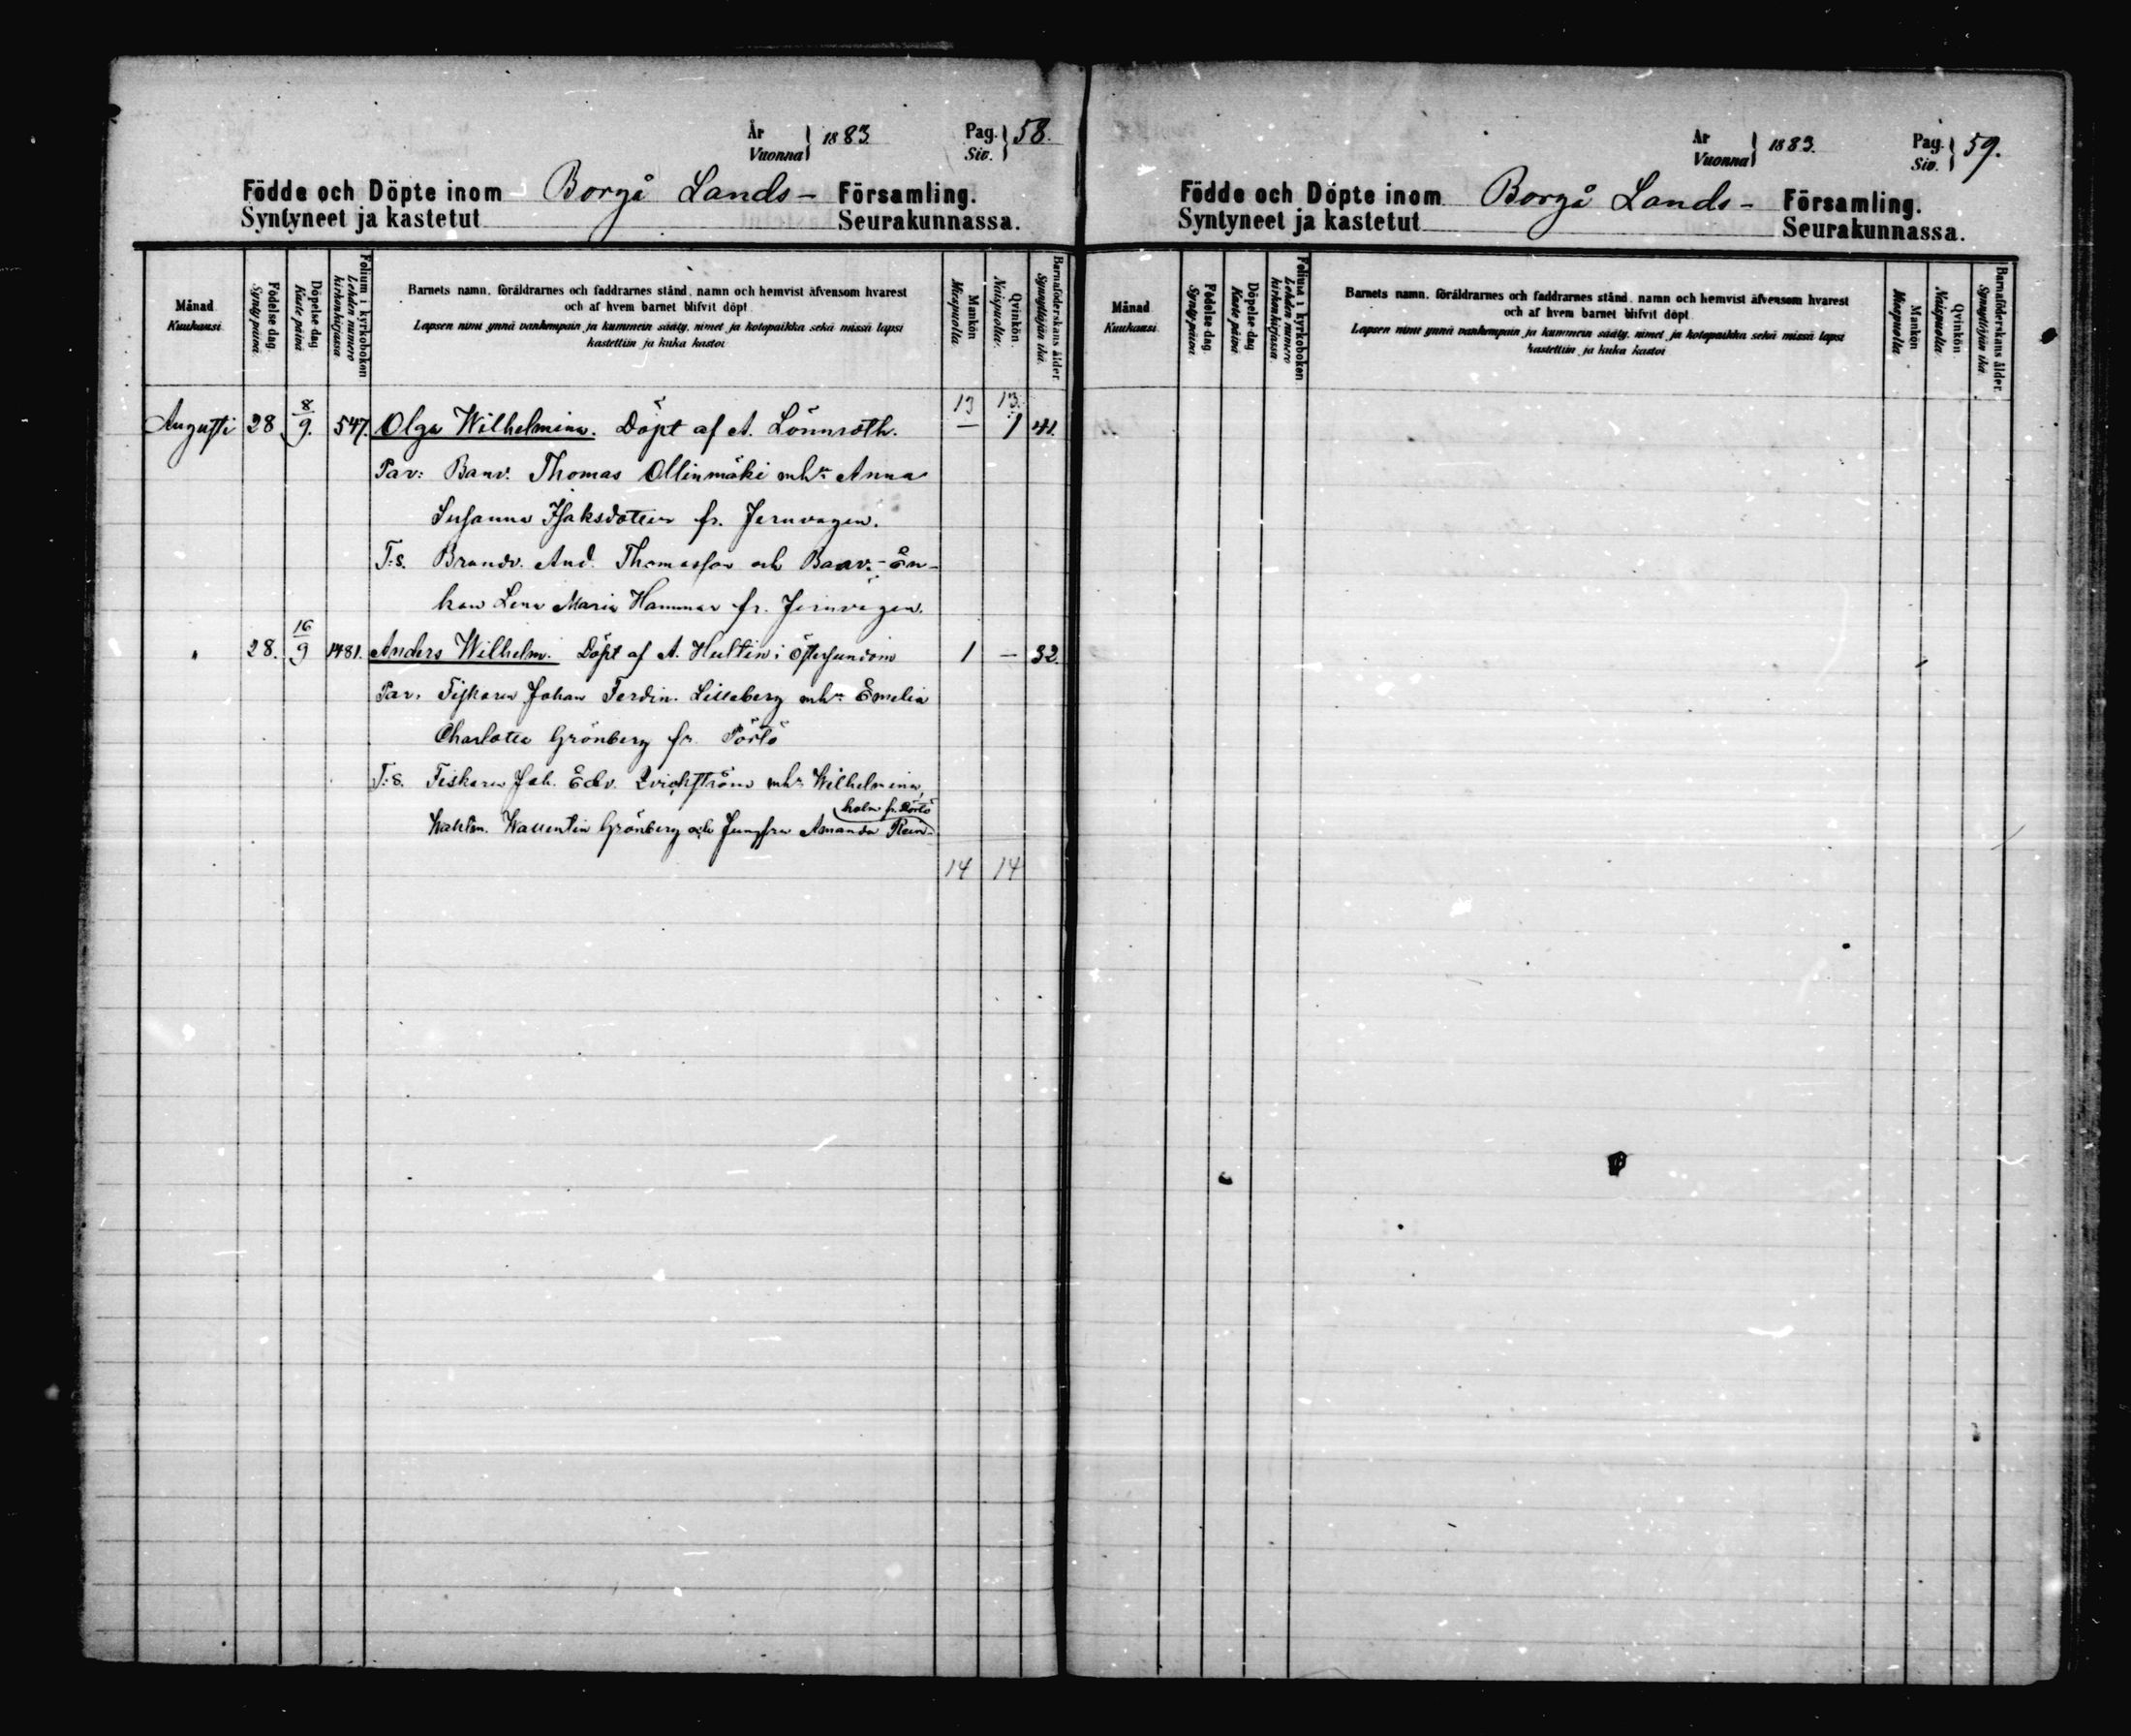 År
Vuonna } 1883. Pag.
Siv. } 58.
Födde och Döpte inom Borgå Lands- Församling.
Syntyneet ja kastetut Seurakunnassa.
Månad
Kuukausi
Födelse dag.
Synty päivä
Döpelse dag
Kaste päivä
Folium i kyrkoboken
Lehden numero
kirkonkirjassa
Barnets namn, föräldrarnes och faddrarnes stånd, namn och hemvist äfvensom hvarest
och af hvem barnet blifvit döpt.
Lapsen nimi ynnä vanhempain ja kummein sääty, nimet ja kotopaikka sekä missä lapsi
kastettiin ja kuka kastoi
Mankön
Miespuolta
Qvinkön
Naispuolta.
Barnaföderskans ålder.
Synnyttäjän ikä.
13 13.
Augusti 28 8/9. 547. Olga Wilhelmina. Döpt af A. Lönnroth. — 1 41.
Par: Banv. Thomas Ollinmäki m hn Anna
Susanna Isaksdotter fr. Jernvägen.
T:s. And. Thomasson och Banv.-En-
kan Lena Maria Hammar fr. Jernvägen.
" 28. 16/9 1481. Anders Wilhelm. Döpt af A. Hultin i Östersundom 1 — 32.
Par. Fiskaren Johan Ferdin. Lilleberg m hn Emelia
Charlotta Grönberg fr. Pörtö
T:s. Fiskaren Joh. Edv. m hn Wilhelmina,
holm fr. Pörtö
Wallentin Grönberg och Jungfrun Amanda Rein-
14 14
År
Vuonna } 1883. Pag.
Siv. } 59.
Födde och Döpte inom Borgå Lands- Församling.
Syntyneet ja kastetut Seurakunnassa.
Månad
Kuukausi
Födelse dag
Synty päivä
Döpelse dag
Kaste päivä
Folium i kyrkoboken
Lehden numero
kirkonkirjassa.
Barnets namn, föräldrarnes och faddrarnes stånd, namn och hemvist äfvensom hvarest
och af hvem barnet blifvit döpt
Lapsen nimi ynnä vanhempain ja kummein sääty, nimet ja kotopaikka sekä missä lapsi
kastettiin ja kuka kastoi
Mankön
Miespuolta
Qvinkön
Naispuolta.
Barnaföderskans ålder.
Synnyttäjän ikä.